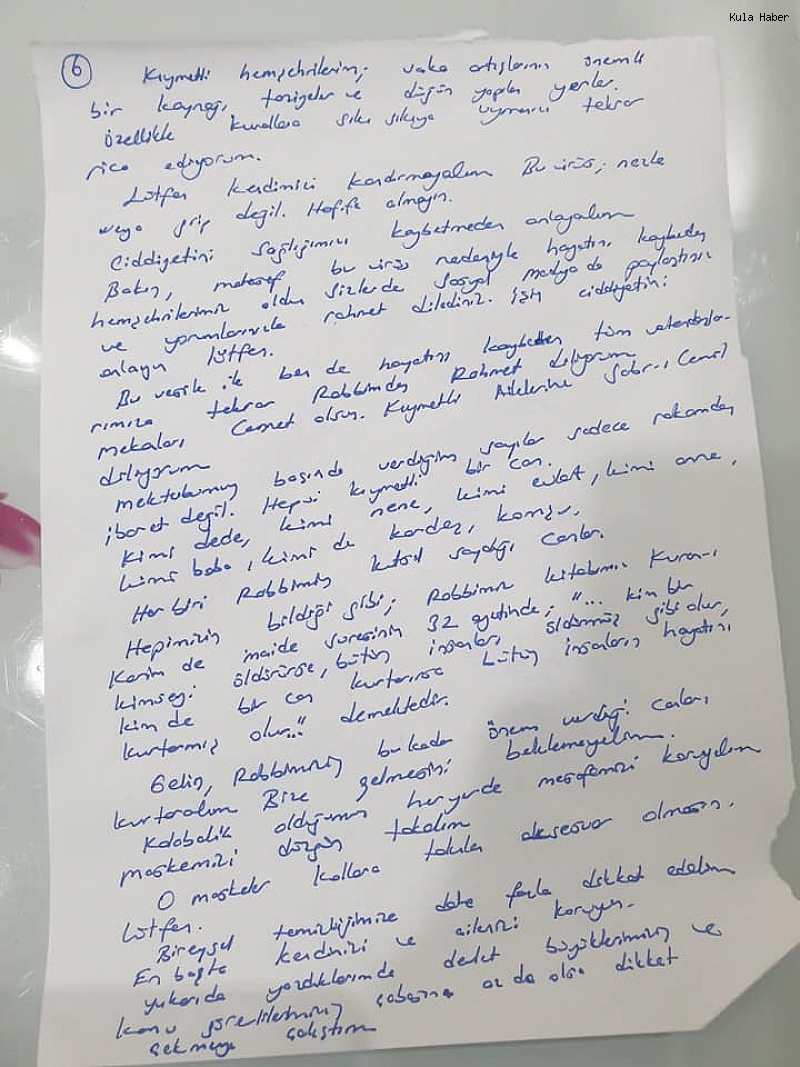 Kula Haber
6
Kıymetli hemşehrilerim; vaka artışlarının önemli
bir kaynağı, taziyeler ve düğün yapılan yerler.
Özellikle kurallara sıkı sıkıya uymanızı tekrar
rica ediyorum.
Lütfen kendimizi kandırmayalım Bu virüs; nezle
veya grip değil. Hafife almayın.
Ciddiyetini sağlığımızı kaybetmeden anlayalım
Bakın, maalesef bu virüs nedeniyle hayatını kaybeden
hemşehrilerimiz oldu sizlerde sosyal medya da paylaştınız
ve yorumlarınızla rahmet dilediniz. işin ciddiyetini
anlayın lütfen.
Bu vesile ile ben de hayatını kaybeden tüm vatandaşla-
rımıza tekrar Robbimden Rahmet diliyorum
mekanları Cennet olsun. Kıymetli Ailelerine Sabr-ı Cemil
diliyorum
mektubumun başında verdiğim sayılar sadece rakamdan
ibaret değil. Hepsi kıymetli bir can.
Kimi dede, kimi nene, kimi evlat, kimi anne,
kimi baba, kimi de kardeş, komşu.
Her biri Robbimin kutsal saydığı canlar.
Hepimizin bildiği gibi; Robbimiz kitabımız Kuran-ı
Kerim de maide suresinin 32 ayetinde; "... kim bir
kimseyi öldürürse, bütün insanları öldürmüş gibi olur,
kim de bir can kurtarırsa bütün insanların hayatını
kurtarmış olur..." demektedir.
Gelin, Robbimizin bu kadar önem verdiği canları
kurtaralım Bize gelmesini beklemeyelim.
Kalabalık olduğumuz her yerde mesafemizi koruyalım
maskemizi düzgün takalım
O maskeler kollara takılan aksesuar olmasın.
Lütfen.
Bireysel temizliğimize daha fazla dikkat edelim
En başta kendinizi ve ailenizi koruyun.
yukarıda yazdıklarımda devlet büyüklerimizin ve
kamu görevlilerinin çabasına az da olsa dikkat
çekmeye çalıştım